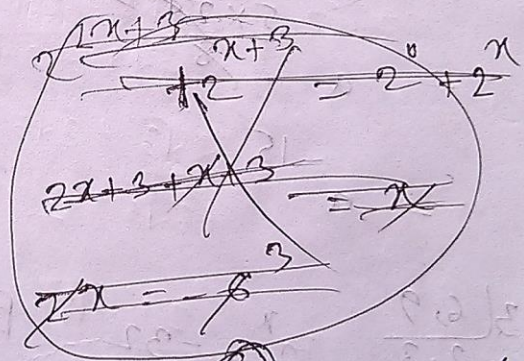 2^{2x+3} + 2^{x+3} = 2^0 + 2^x
2x+3+x+3 = x
2x = -6
3